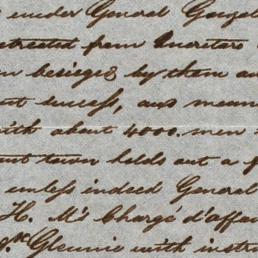 under General Gonzal
retreated from Queretaro
besieged by them an
success, and mean
with about 4000. men
town holds out a
unless indeed General
H. M's Chargé d'affai
Glennie with instru